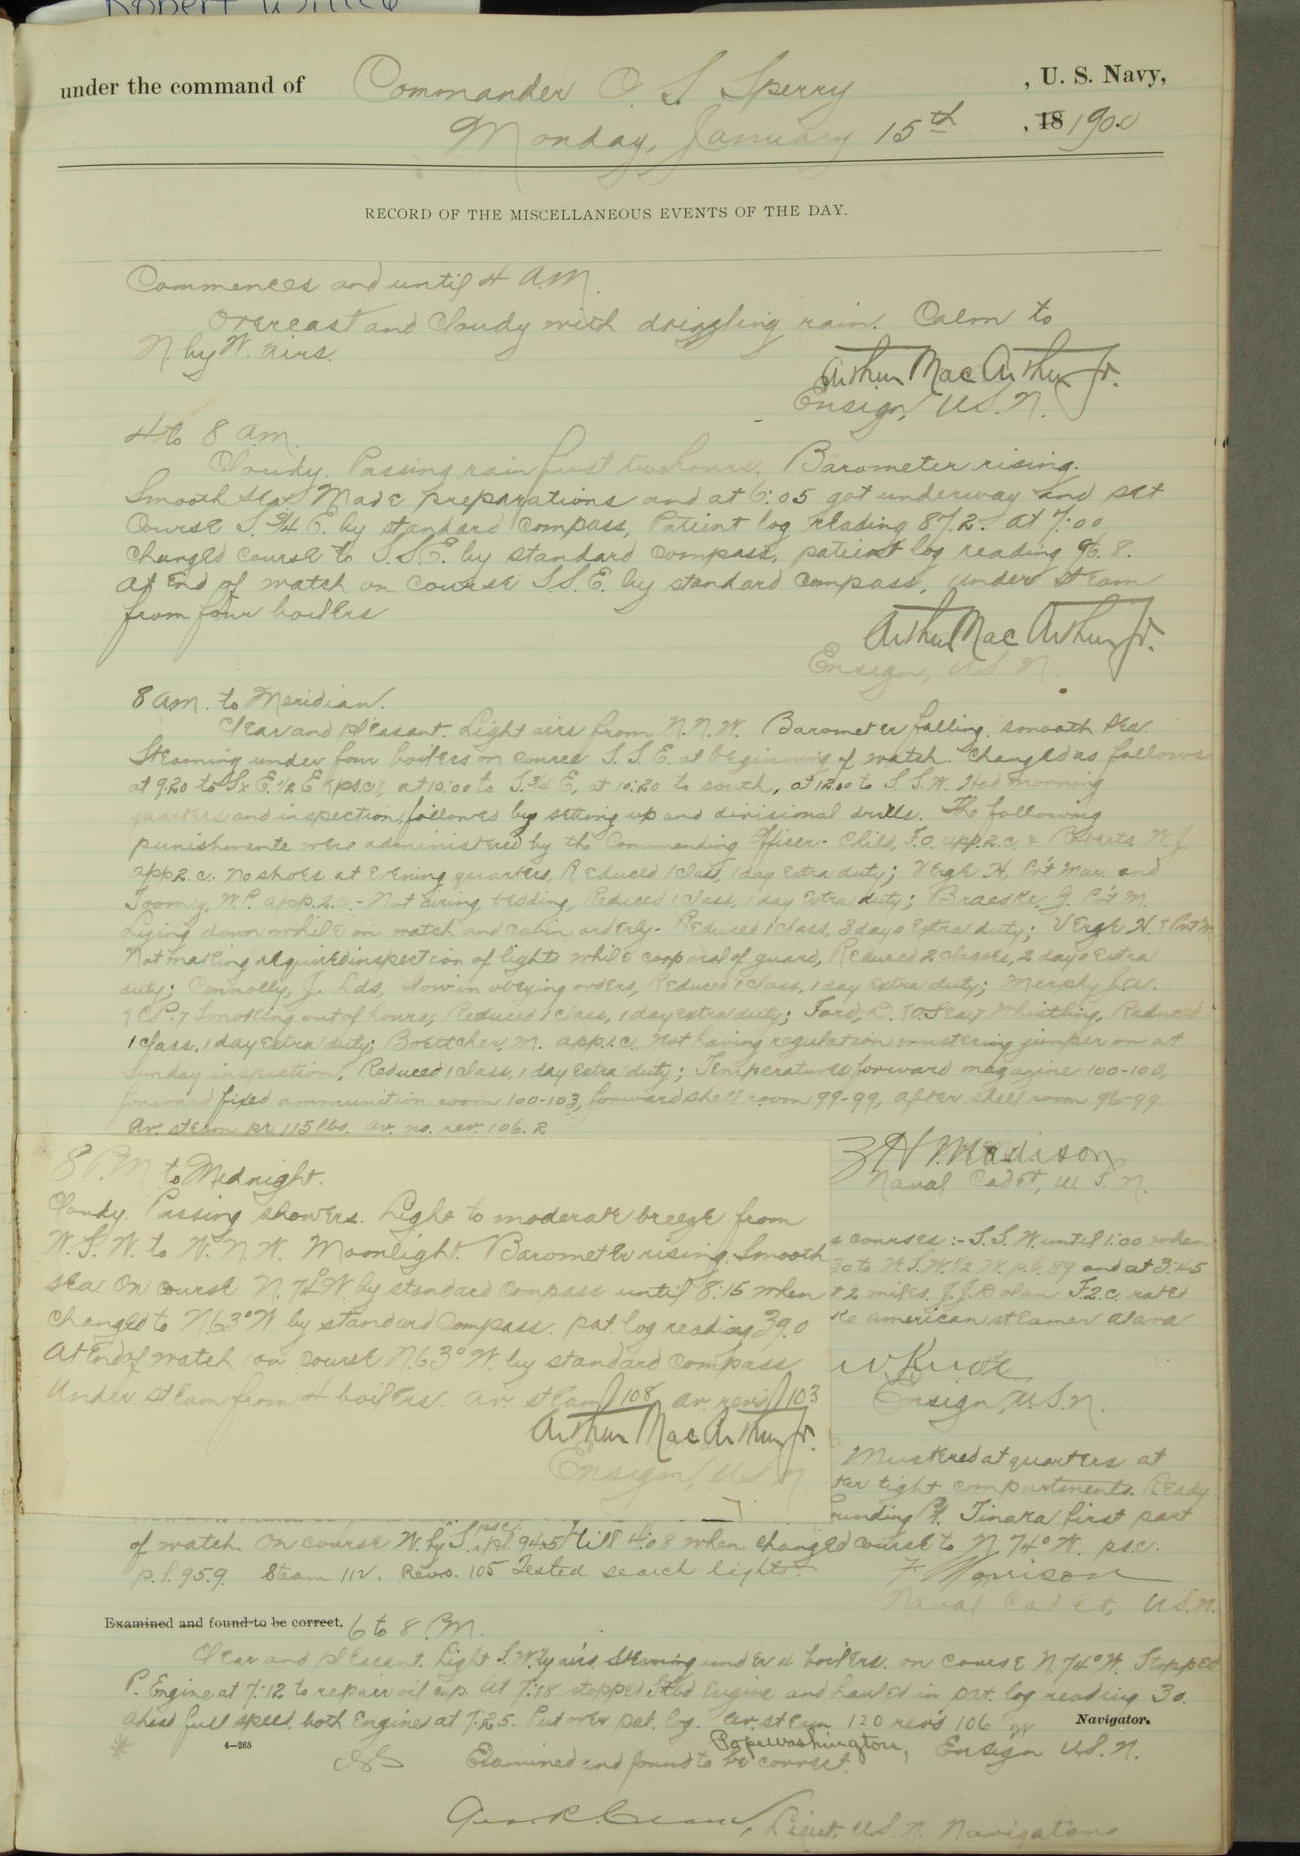 Robert Willie
under the command of Commander C. S. Sperry , U. S. Navy,
Monday, January 15th , 18 1900
RECORD OF THE MISCELLANEOUS EVENTS OF THE DAY.
Commences and until 4 A.M.
Overcast and Cloudy with drizzling rain. Calm to
N. by W. airs.
Arthur MacArthur Jr.
Ensign, U.S.N.
4 to 8 a.m.
Cloudy. Passing rain first two hours. Barometer rising.
Smooth sea. Made preparations and at 6:05 got underway and set
course S. 3/4 E. by standard compass, Patient log reading 87.2. At 7:00
changed course to S.S.E. by standard compass, patient log reading 96.8.
At end of watch on course S.S.E. by standard compass, under steam
from four boilers
Arthur MacArthur Jr.
Ensign, U.S.N.
8 a.m. to Meridian.
Clear and pleasant. Light airs from N.N.W. Barometer falling, smooth sea.
Steaming under four boilers on course S.S.E. at beginning of watch. Changed as follows
at 9:20 to S x E. 1/2 E (psc), at 10:00 to S. 3/4 E, at 10:20 to south, at 12:00 to S.S.W. Had morning
quarters and inspection, followed by setting up and divisional drills. The following
punishments were administered by the Commanding Officer - Child, F.O. app.2.c. & Roberts W.J.
app 2.c. no shoes at evening quarters, Reduced 1 class, 1 day extra duty; Verge H. Pvt Mar. and
Toomey, W.P. app.2.c. - Not airing bedding, Reduced 1 class, 1 day extra duty; Braeske, J. Pvt M.
Lying down while on watch and cabin orderly - Reduced 1 class, 3 days extra duty; Verge H. (Pvt M)
Not making required inspection of lights while corporal of guard, Reduced 2 classes, 2 days extra
duty; Connolly, J. Lds, slow in obeying orders, Reduced 1 class, 1 day extra duty; Murphy
(C.P.) Smoking out of hours, Reduced 1 class, 1 day extra duty; Ford, D. (O.Sea) Whistling, Reduced
1 class, 1 day extra duty; Boettcher, M. app.1.c. Not having regulation mustering jumper on at
Sunday inspection, Reduced 1 class, 1 day extra duty; Temperatures forward magazine 100-100,
forward fixed ammunition room 100-103, forward shell room 99-99, after shell room 96-99.
Av. steam pr 115 lbs. av. no. rev. 106.2
Z H Madison
Naval Cadet, U.S.N.
8 P.M to Midnight.
Cloudy. Passing showers. Light to moderate breeze from
W.S.W. to W.N.W. Moonlight. Barometer rising. Smooth
sea. On course N. 74° W. by standard compass until 8:15 when
changed to N. 63° W by standard compass. pat. log reading 39.0
At end of watch on course N. 63° W. by standard compass
Under steam from 4 boilers. av. steam 108 av. revs 103
Arthur MacArthur Jr.
Ensign, U.S.N.
s courses :- S.S.W. until 1:00 when
30 to W.S.W. 1/2 W. p.l. 89 and at 3:45
t 2 miles. J.J. Dolan F.2.c. rated
ke american steamer
Ensign, U.S.N.
Mustered at quarters at
ter tight compartments. Ready
rounding Pt. Tinara first part
of watch. On course W. by S. psc. p.l. 94.5 till 4:08 when changed course to N 74° W. psc.
p.l. 95.9. Steam 112. Revs. 105 Tested search lights.
F. Morrison
Naval Cadet, U.S.N.
Examined and found to be correct.
6 to 8 P.M.
Clear and pleasant. Light S.W'ly airs. Steaming under 4 boilers. on course N. 74° W. Stopped
P. Engine at 7:12 to repair oil cup. At 7:18 stopped Stbd Engine and hauled in pat. log reading 30.
Ahead full speed, both Engines at 7:25. Put over pat. log. av. steam 120 rev's 106
Navigator.
4—265
Pope Washington, Ensign U.S.N.
Examined and found to be correct.
Lieut. U.S.N. Navigator